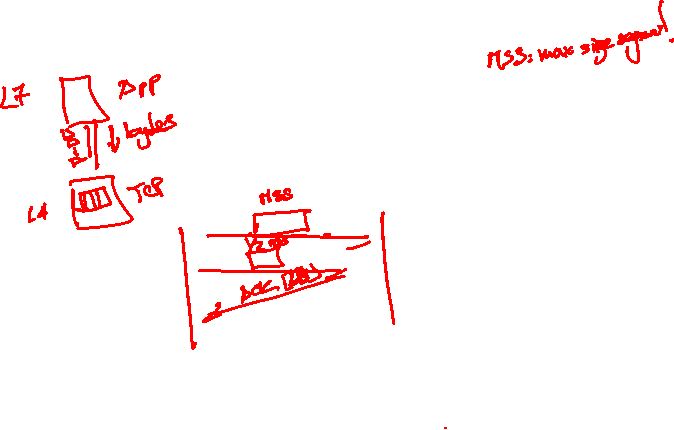 MSS: max size segment
L7
APP
bytes
L4
TCP
MSS
ACK